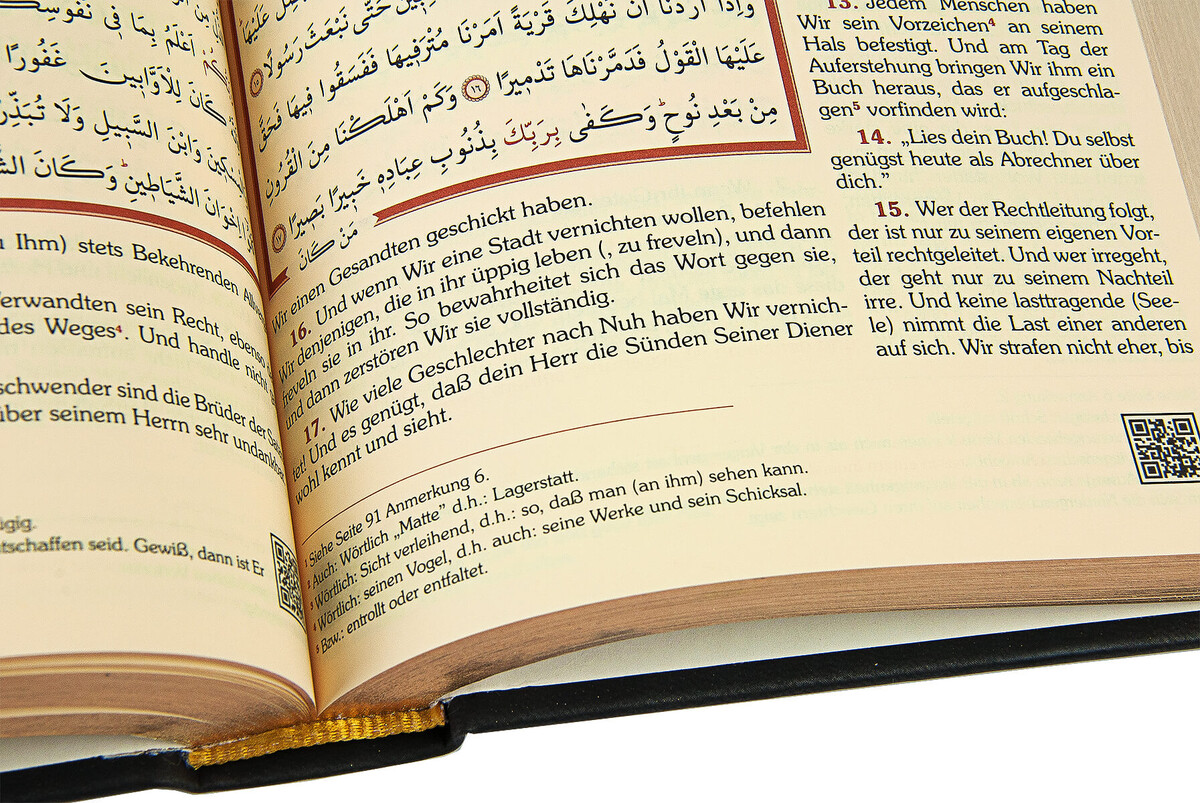 اَعْلَمُ بِمَا فٖي نُفُوسِكُمْ
كَانَ لِلْاَوَّابٖينَ غَفُورًا
وَابْنَ السَّبٖيلِ وَلَا تُبَذِّرْ
اِخْوَانَ الشَّيَاطٖينِ وَكَانَ
Ihm) stets Bekehrenden
erwandten sein Recht, ebenso
des Weges⁴. Und handle nicht
schwender sind die Brüder der
über seinem Herrn sehr undankbar
tschaffen seid. Gewiß, dann ist Er
حَتّٰى نَبْعَثَ رَسُولًا ﴿١٥﴾
وَاِذَٓا اَرَدْنَٓا اَنْ نُهْلِكَ قَرْيَةً اَمَرْنَا مُتْرَفٖيهَا فَفَسَقُوا فٖيهَا فَحَقَّ
عَلَيْهَا الْقَوْلُ فَدَمَّرْنَاهَا تَدْمٖيرًا ﴿١٦﴾ وَكَمْ اَهْلَكْنَا مِنَ الْقُرُونِ
مِنْ بَعْدِ نُوحٍ وَكَفٰى بِرَبِّكَ بِذُنُوبِ عِبَادِهٖ خَبٖيرًا بَصٖيرًا ﴿١٧﴾
مَنْ كَانَ
13. Jedem Menschen haben
Wir sein Vorzeichen⁴ an seinem
Hals befestigt. Und am Tag der
Auferstehung bringen Wir ihm ein
Buch heraus, das er aufgeschla-
gen⁵ vorfinden wird:
14. „Lies dein Buch! Du selbst
genügst heute als Abrechner über
dich.”
15. Wer der Rechtleitung folgt,
der ist nur zu seinem eigenen Vor-
teil rechtgeleitet. Und wer irregeht,
der geht nur zu seinem Nachteil
irre. Und keine lasttragende (See-
le) nimmt die Last einer anderen
auf sich. Wir strafen nicht eher, bis
Wir einen Gesandten geschickt haben.
16. Und wenn Wir eine Stadt vernichten wollen, befehlen
Wir denjenigen, die in ihr üppig leben (, zu freveln), und dann
freveln sie in ihr. So bewahrheitet sich das Wort gegen sie,
und dann zerstören Wir sie vollständig.
17. Wie viele Geschlechter nach Nuh haben Wir vernich-
tet! Und es genügt, daß dein Herr die Sünden Seiner Diener
wohl kennt und sieht.
¹ Siehe Seite 91 Anmerkung 6.
² Auch: Wörtlich „Matte” d.h.: Lagerstatt.
³ Wörtlich: Sicht verleihend, d.h.: so, daß man (an ihm) sehen kann.
⁴ Wörtlich: seinen Vogel, d.h. auch: seine Werke und sein Schicksal.
⁵ Bzw.: entrollt oder entfaltet.